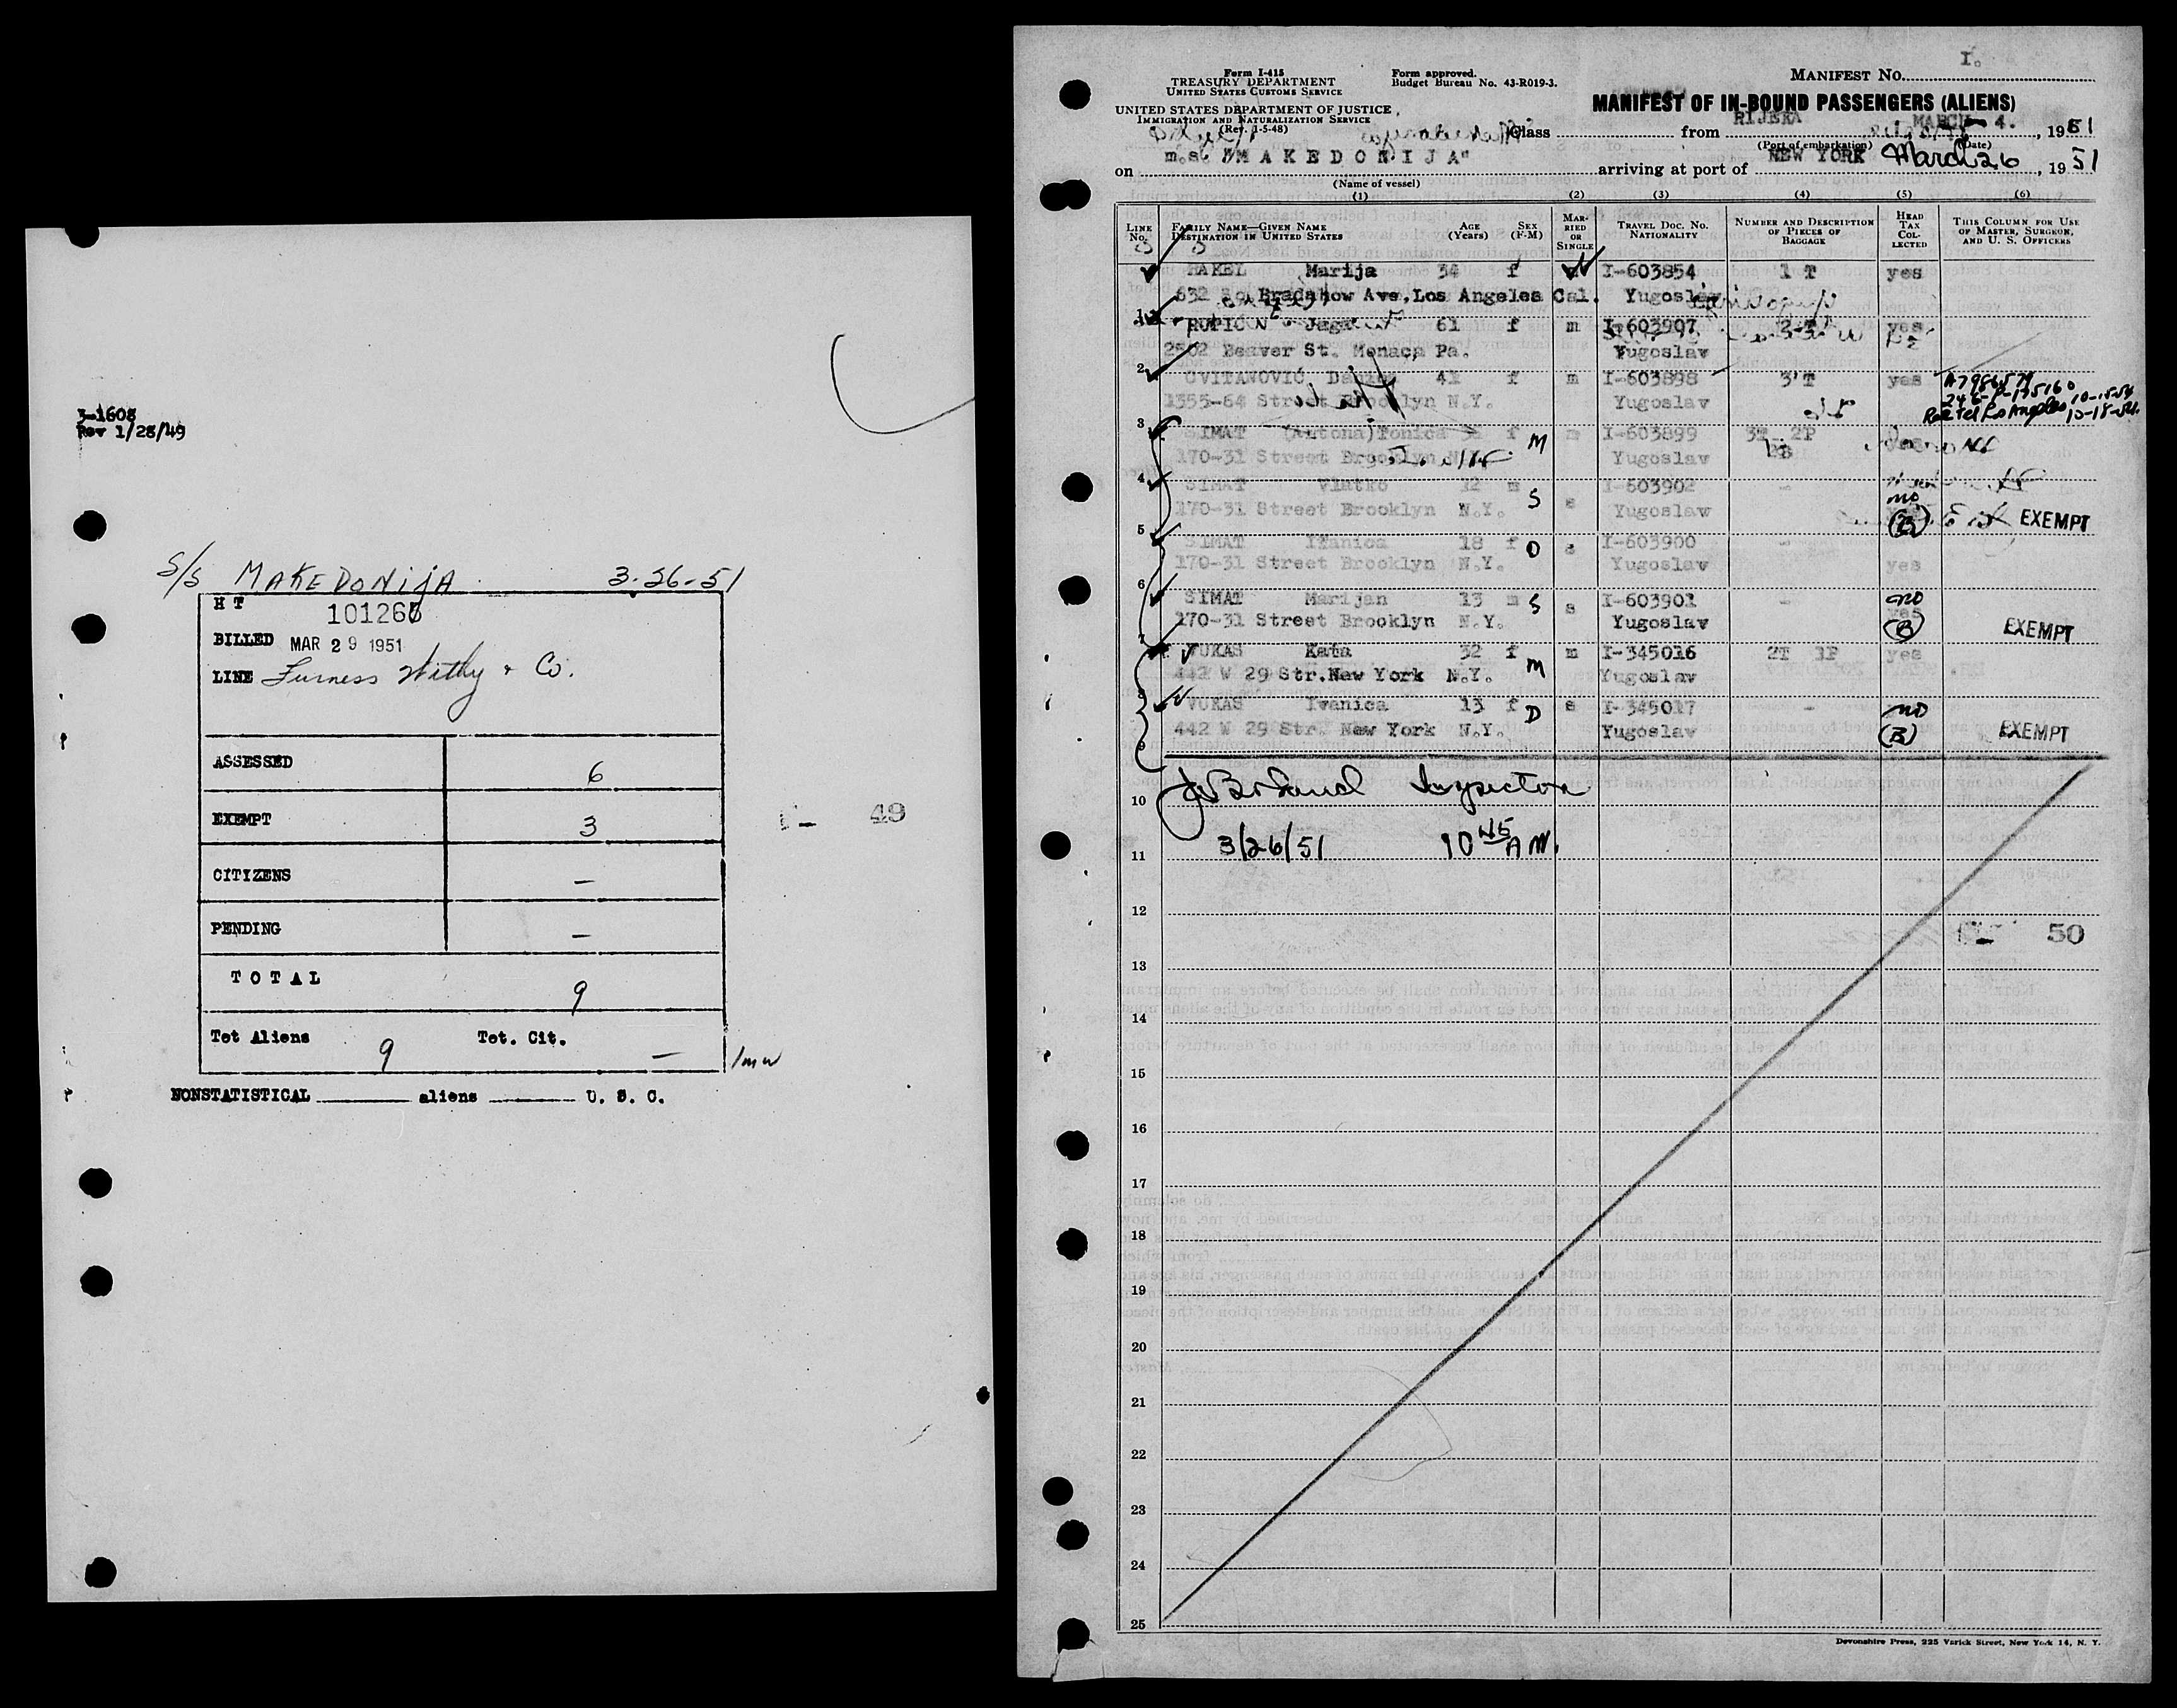 3-1608
Rev 1/28/49
S/S MAKEDONIJA 3-26-51
H T 101267
BILLED MAR 29 1951
LINE Furness Withy & Co.
ASSESSED 6
EXEMPT 3
CITIZENS –
PENDING –
T O T A L 9
Tot Aliens 9 Tot. Cit. –
/mw
NONSTATISTICAL aliens U. S. C.
49
Form I-415
TREASURY DEPARTMENT
UNITED STATES CUSTOMS SERVICE
UNITED STATES DEPARTMENT OF JUSTICE
IMMIGRATION AND NATURALIZATION SERVICE
(Rev. 1-5-48)
Form approved.
Budget Bureau No. 43-R019-3.
MANIFEST No. I.
MANIFEST OF IN-BOUND PASSENGERS (ALIENS)
Class from RIJEKA MARCH 4., 1951
(Port of embarkation) (Date)
on m.s. "MAKEDONIJA" arriving at port of NEW YORK March 26, 1951
(Name of vessel)
(1) (2) (3) (4) (5) (6)
LINE No. FAMILY NAME—GIVEN NAME DESTINATION IN UNITED STATES AGE (Years) SEX (F-M) MARRIED OR SINGLE TRAVEL DOC. No. NATIONALITY NUMBER AND DESCRIPTION OF PIECES OF BAGGAGE HEAD TAX COLLECTED THIS COLUMN FOR USE OF MASTER, SURGEON, AND U. S. OFFICERS
Marija 34 f I-603854 1 T yes
632 So. Bradshow Ave. Los Angeles Cal. Yugoslav
1 Jaga 61 f m I-603907 2 T yes
2802 Beaver St. Monaca Pa. Yugoslav
2 CVITANOVIĆ f m I-603898 3 T yes
1355-64 Street Brooklyn N.Y. Yugoslav
3 SIMAT (Antona) Tonica f M m I-603899 3T 2P
170-31 Street Brooklyn N.Y. Yugoslav
4 SIMAT Vlatko 12 m S s I-603902 - no
170-31 Street Brooklyn N.Y. Yugoslav (B) EXEMPT
5 SIMAT 18 f D s I-603900 -
170-31 Street Brooklyn N.Y. Yugoslav yes
6 SIMAT Marijan 13 m S s I-603901 - no
170-31 Street Brooklyn N.Y. Yugoslav (B) EXEMPT
7 VUKAS Kata 32 f M m I-345016 2T 1P yes
442 W 29 Str. New York N.Y. Yugoslav
8 VUKAS Ivanica 13 f D s I-345017 - no
442 W 29 Str. New York N.Y. Yugoslav (B) EXEMPT
9
10 Inspector
11 3/26/51 10 45 AM.
12
50
13
14
15
16
17
18
19
20
21
22
23
24
25
Devonshire Press, 225 Varick Street, New York 14, N. Y.